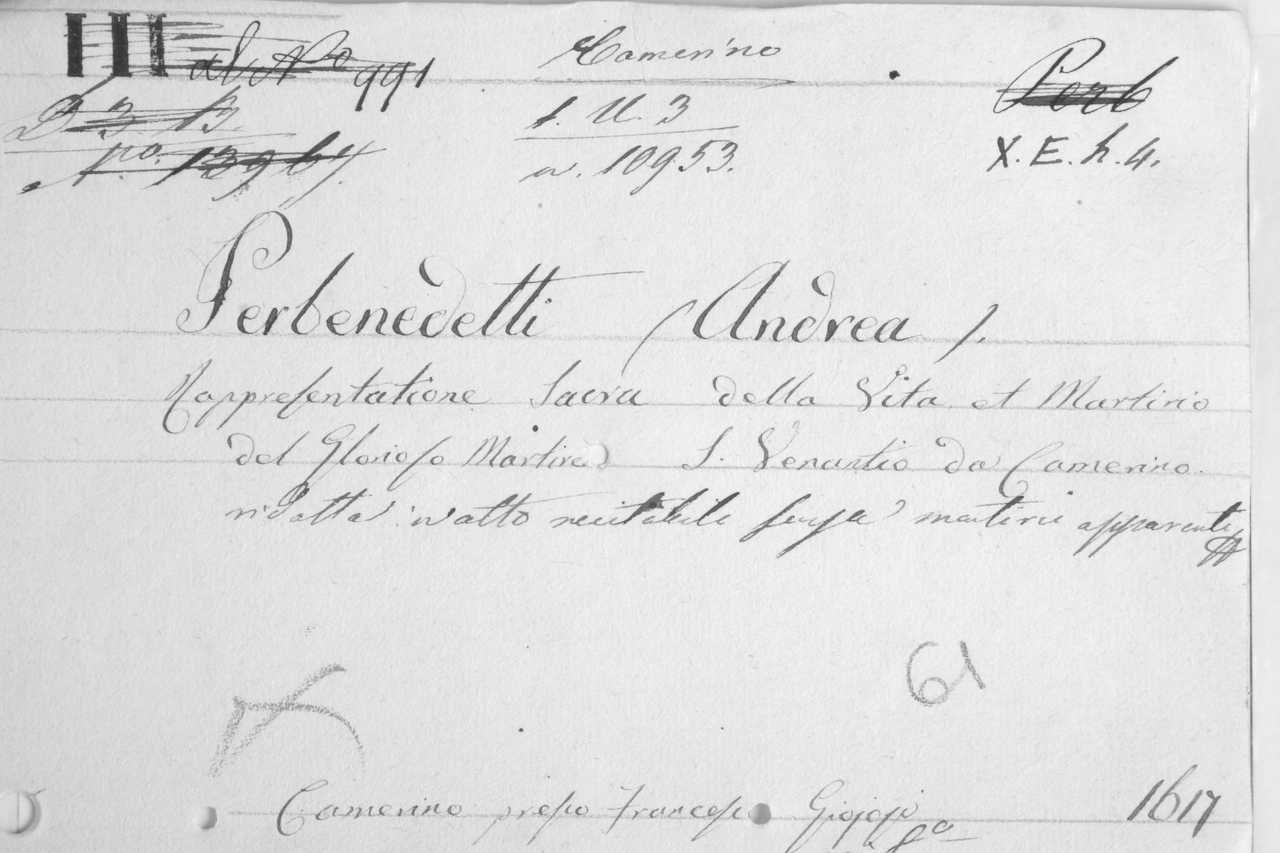 III al No 991
Camerino
Perb
D. 3 13.
I. U. 3
X. E. h. 4.
no. 13964.
n. 10953.
Perbenedetti (Andrea).
Rappresentatione Sacra della Vita et Martirio
del Glorioso Martire S. Venantio da Camerino.
ridotta in atto recitabile apparenti
61
Camerino presso Francesco Giojosi 1617
8o